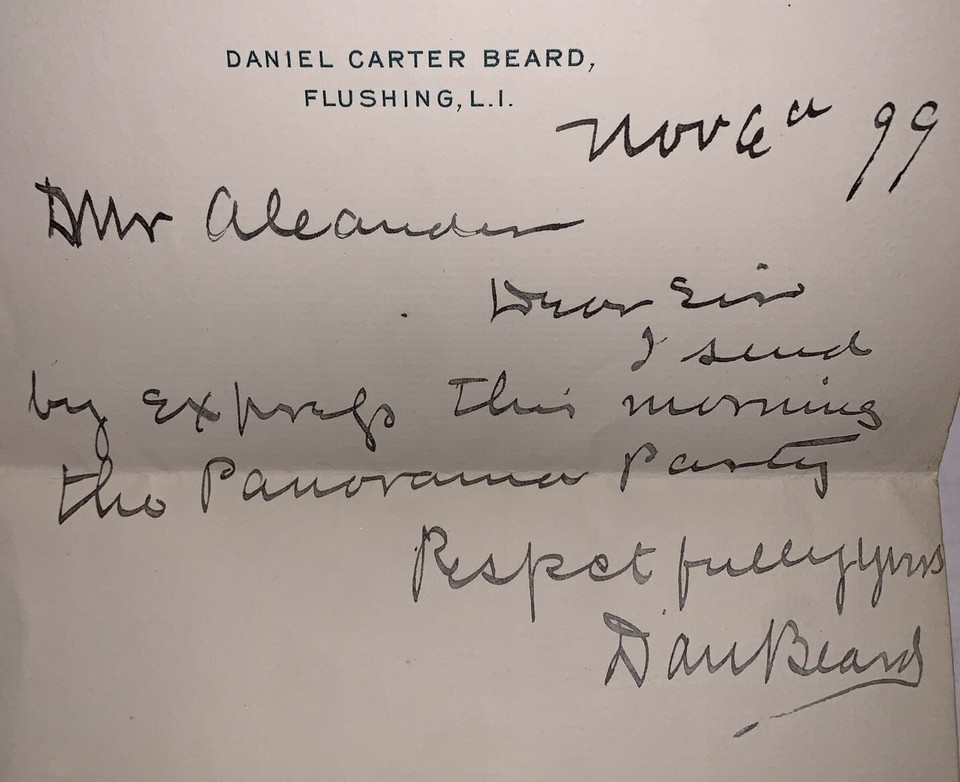 DANIEL CARTER BEARD,
FLUSHING, L.I.
Nov 6th 99
Mr Aleander
Dear Sir
I send
by express this morning
the Panorama Party
Respectfully yours
Dan Beard